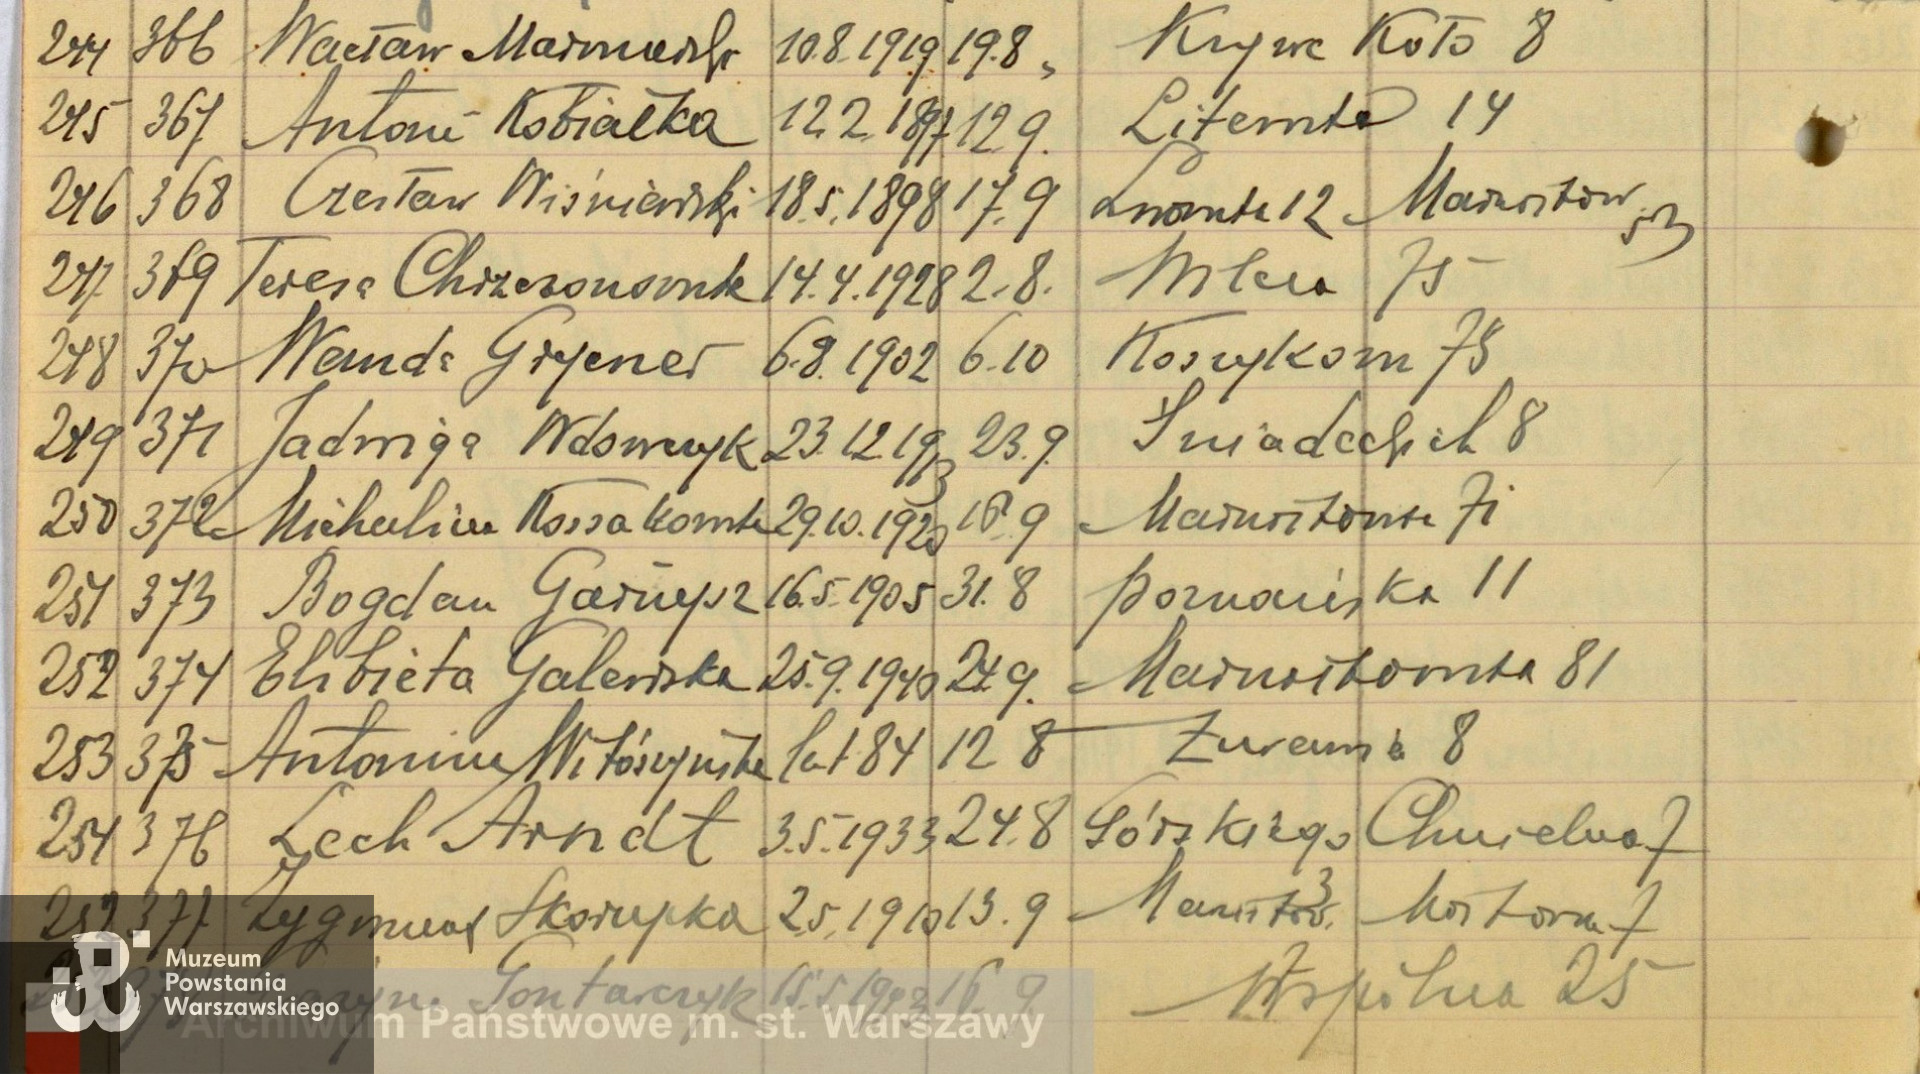 244 366 Wacław 10.8.1919 19.8 „ Krzywe Koło 8
245 367 Antoni Kobiałka 12.2.1897 12.9. Literacka 14
246 368 Czesław Wiśniewski 18.5.1898 17.9 12 Marszałkow 53
247 369 Teresa Chrzanowska 14.4.1928 2.8. Wilcza 75
248 370 Wanda 6.8.1902 6.10 Koszykow 75
249 371 Jadwiga Wdowczyk 23.12.1913 23.9. Śniadeckich 8
250 372 Michalina Kossakowska 29.10.1920 16.9 Marszałkowska 71
251 373 Bogdan 16.5.1905 31.8 Poznańska 11
252 374 Elżbieta Galewska 25.9.1940 24.9. Marszałkowska 81
253 375 Antonina lat 84 12 8 Żurawia 8
254 376 Lech Arndt 3.5.1933 24.8 Górskiego Chmielna 7
377 Zygmunt Skorupka 2.5.1910 13.9 Marszałkow. 3 7
Gontarczyk 15.5.1902 16 9 Wspólna 25
Muzeum
Powstania
Warszawskiego
Archiwum Państwowe m. st. Warszawy